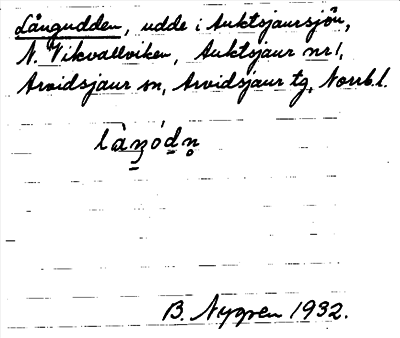 Långudden, udde i Auktsjaursjön,
N. Vikvallviken, Auktsjaur nr 1,
Arvidsjaur sn, Arvidsjaur tg, Norrb.l.
B. Nygren 1932.